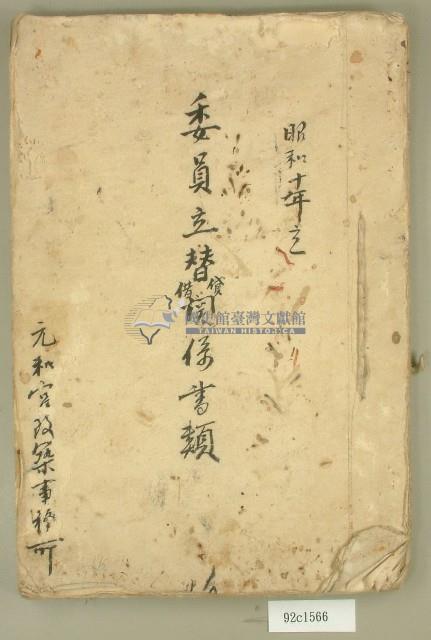 昭和十年立
委員立替貸借関係書類
元和宮改築事務所
國史館臺灣文獻館
TAIWAN HISTORICA
92c1566